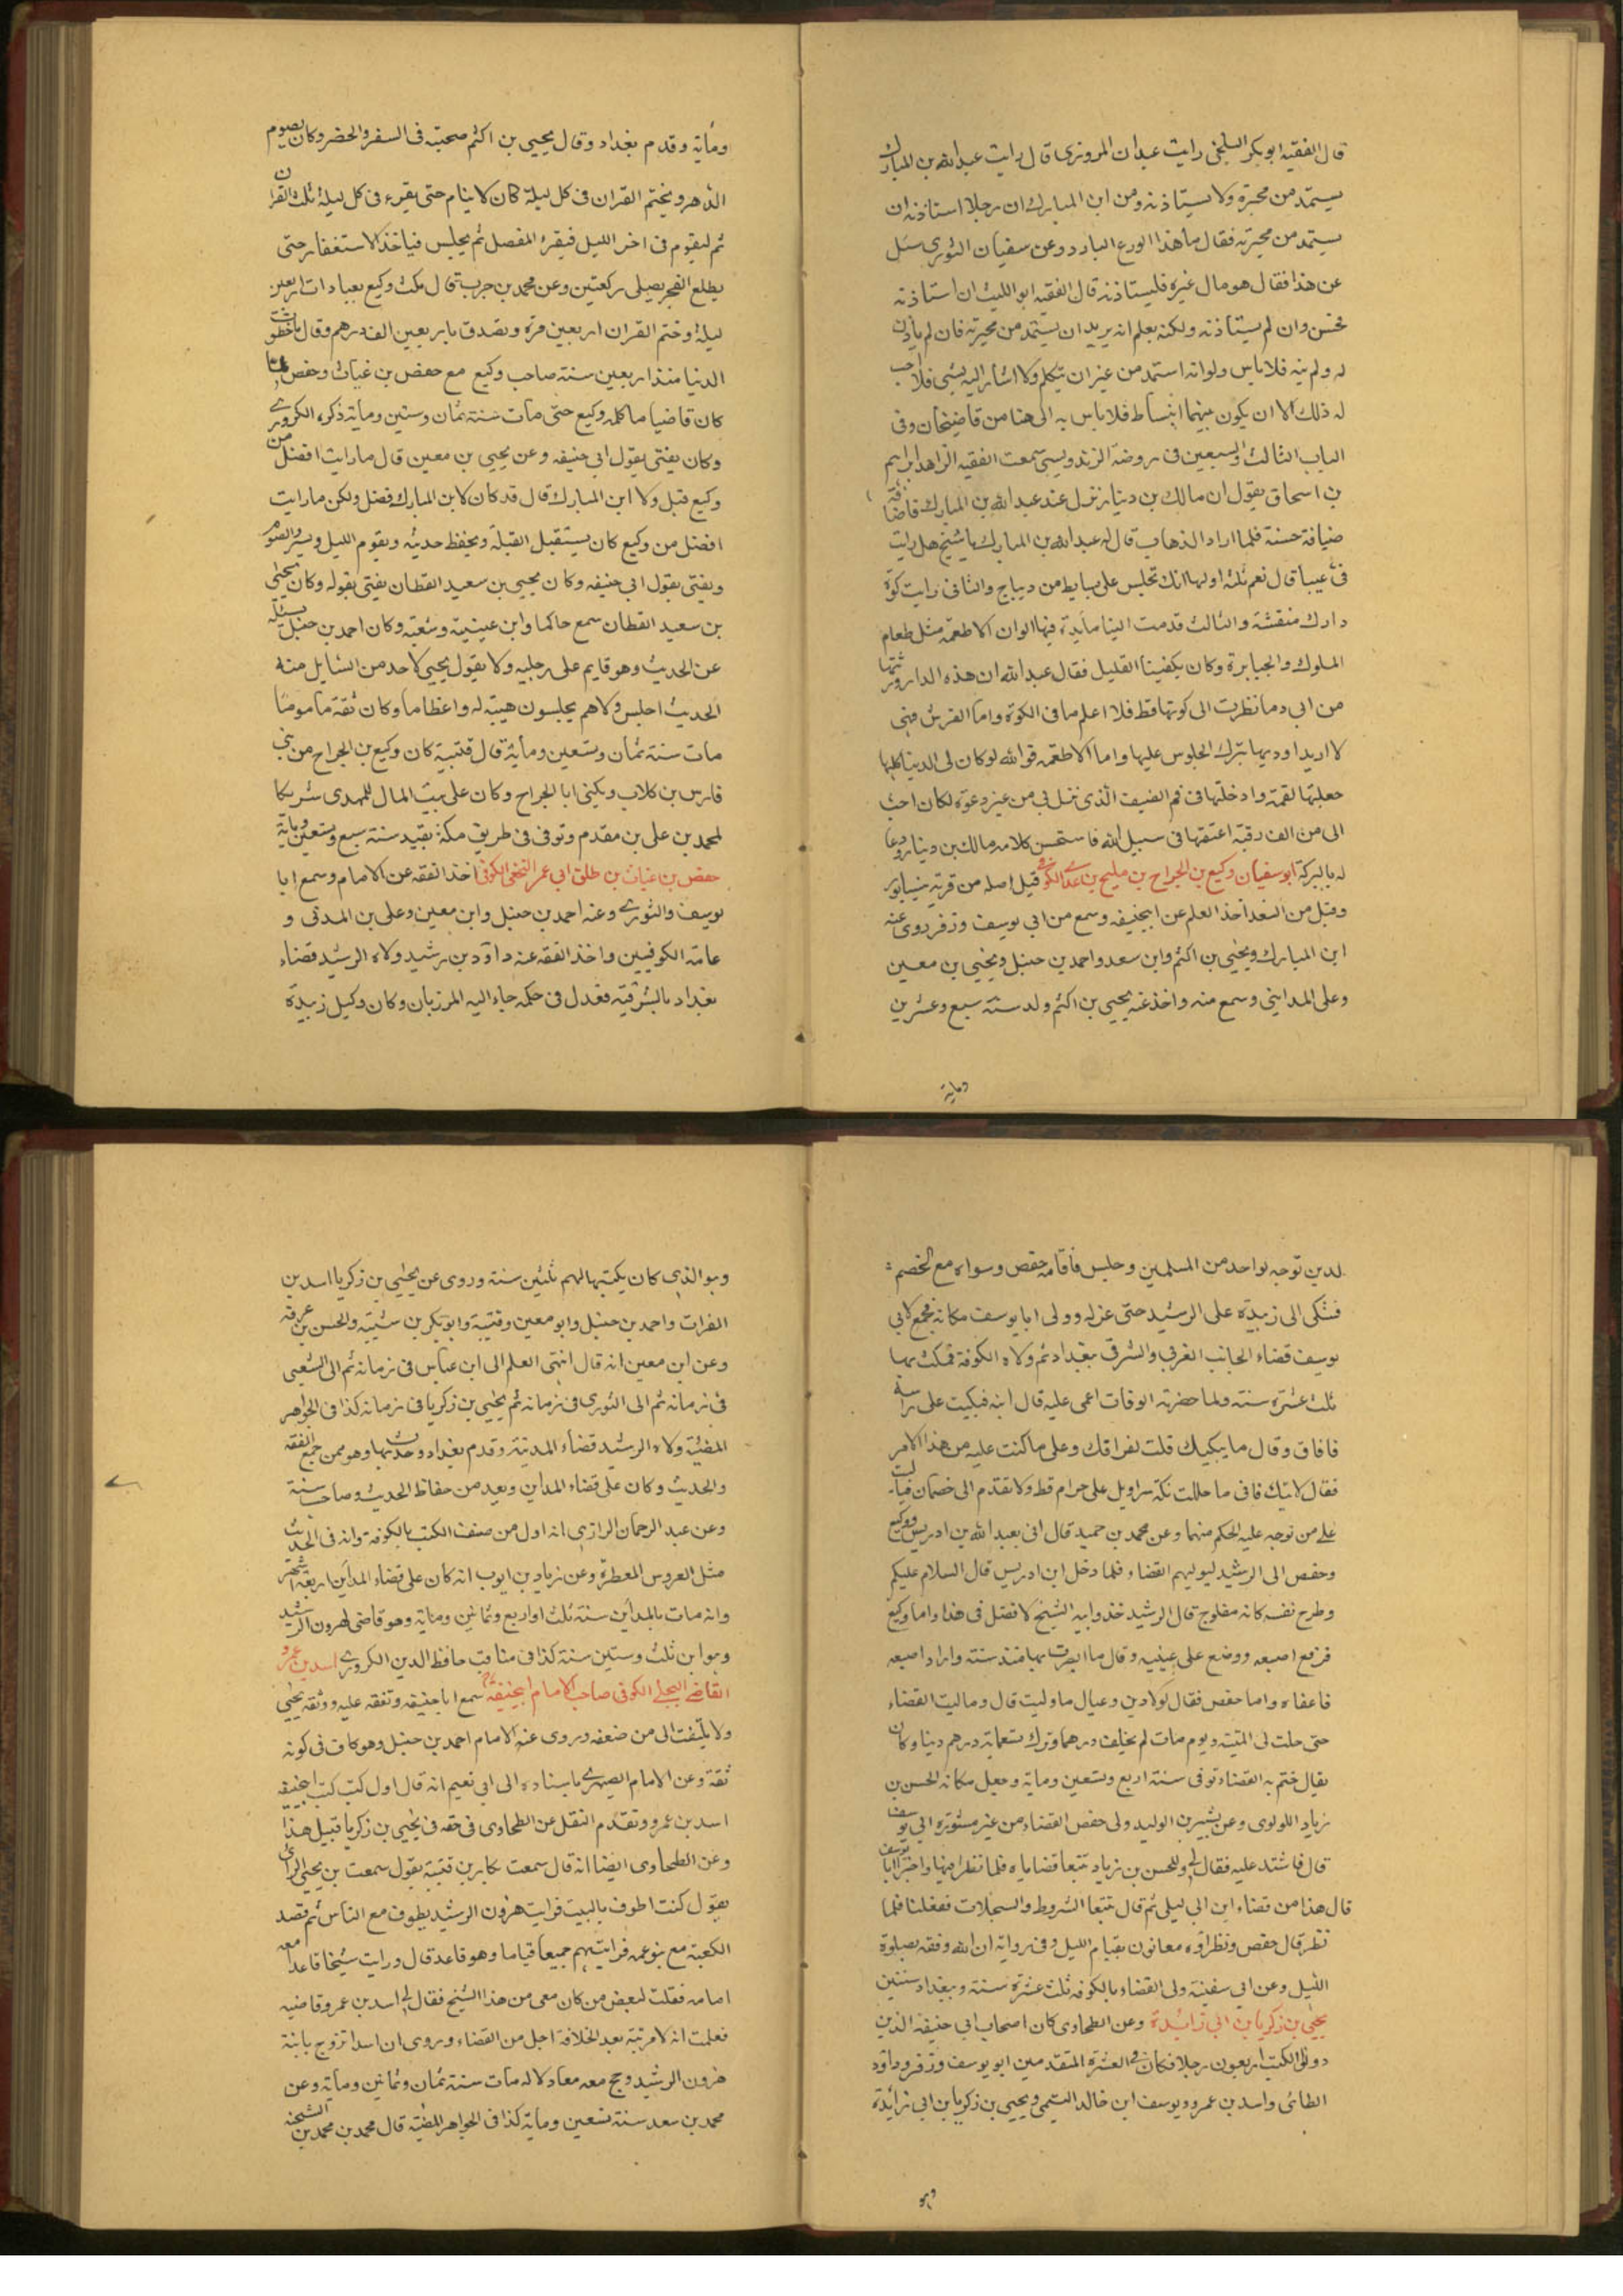 قال الفقيه ابو بكر البلخى رايت عبدان المروزى قال رايت عبد الله بن المبارك
يستمد من محبرة ولا يستاذنه ومن ابن المبارك ان رجلا استاذنه ان
يستمد من محبرته فقال ما هذا الورع البارد وعن سفيان الثورى سئل
عن هذا فقال هو مال غيره فليستاذنه قال الفقيه ابو الليث ان استاذنه
فحسن وان لم يستاذنه ولكنه يعلم انه يريد ان يستمد من محبرته فان لم ياذن
له ولم ينه فلا باس ولو انه استمد من غير ان يتكلم ولا اشار اليه بشى فلا احب
له ذلك الا ان يكون بينهما انبساط فلا باس به الى هنا من قاضيخان وفى
الباب الثالث والسبعين فى روضة الزندويستى سمعت الفقيه الزاهد ابراهيم
بن اسحاق يقول ان مالك بن دينار نزل عند عبد الله بن المبارك فاضافه
ضيافة حسنة فلما اراد الذهاب قال له عبد الله بن المبارك يا شيخ هل رايت
فىّ عيبا قال نعم ثلثة اولها انك تجلس على بسايط من ديباج والثانى رايت كوّة
دارك منقشة والثالث قدمت الينا مايدة فيها الوان الاطعمة مثل طعام
الملوك والجبابرة وكان يكفينا القليل فقال عبد الله ان هذه الدار ورثتها
من ابى وما نظرت الى كوتها قط فلا اعلم ما فى الكوّة واما الفرش فهى
لا اريدا وديها بترك الجلوس عليها واما الاطعمة فو الله لو كان لى الدنيا كلها
جعلتها لقمة وادخلتها فى فم الضيف الذى نزل بى من غير دعوة لكان احب
الى من الف رقبة اعتقها فى سبيل الله فاستحسن كلامه مالك بن دينار ودعا
له بالبركة ابو سفيان وكيع بن الجراح بن مليح بن عدى الكوفى قيل اصله من قرية نيسابور
وقيل من السغد اخذ العلم عن ابيحنيفه وسمع من ابى يوسف وزفر روى عنه
ابن المبارك ويحيى بن اكثم وابن سعد واحمد بن حنبل ويحيى بن معين
وعلى المدايني وسمع منه واخذ عنه يحيى بن اكثم ولد سنة سبع وعشرين
وماية
وماية وقدم بغداد وقال يحيى بن اكثم صحبته فى السفر والحضر وكان يصوم
الدهر ويختم القران فى كل ليلة كان لا ينام حتى يقرء فى كل ليلة ثلث القران
ثم ليقوم فى اخر الليل فيقرء المفصل ثم يجلس فياخذ الاستغفار حتى
يطلع الفجر يصلى ركعتين وعن محمد بن جرير قال مكث وكيع بعبادات اربعين
ليلة وختم القران اربعين مرة وتصدق باربعين الف درهم وقال ما خطوت
الدنيا منذ اربعين سنة صاحب وكيع مع حفص بن غياث وحفص لما
كان قاضيا ما كلمه وكيع حتى مات سنة ثمان وستين وماية ذكره الكردرى
وكان يفتى بقول ابى حنيفه وعن يحيى بن معين قال ما رايت افضل من
وكيع قيل ولا ابن المبارك قال قد كان لابن المبارك فضل ولكن ما رايت
افضل من وكيع كان يستقبل القبلة ويحفظ حديثه ويقوم الليل ويسرد الصوم
ويفتى بقول ابى حنيفه وكان يحيى بن سعيد القطان يفتى بقوله وكان يحيى
بن سعيد القطان سمع حاكما وابن عيينة وشعبة وكان احمد بن حنبل يسئله
عن الحديث وهو قايم على رجليه ولا يقول يحيى لاحد من السايل منه
الحديث اجلس ولا هم يجلسون هيبة له واعظاما وكان ثقة مامونا
مات سنة ثمان وتسعين وماية قال قتيبة كان وكيع بن الجراح من بنى
فارس بن كلاب ويكنى ابا الجراح وكان على بيت المال للمهدى شريكا
لمحمد بن على بن مقدم وتوفى فى طريق مكة بفيد سنة سبع وتسعين وماية
حفص بن غياث بن طلق ابى عمر النخعى الكوفى اخذ الفقه عن الامام وسمع ابا
يوسف والثورى وعنه احمد بن حنبل وابن معين وعلى بن المدنى و
عامة الكوفيين واخذ الفقه عنه داود بن رشيد ولاه الرشيد قضاء
بغداد بالشرقية فعدل فى حكمه جاء اليه المرزبان وكان وكيل زبيدة
لدين توجه لواحد من المسلمين وجلس فاقامه حفص وسواه مع الخصم
فشكى الى زبيدة على الرشيد حتى عزله وولى ابا يوسف مكانه فجمع لابى
يوسف قضاء الجانب الغربى والشرقى ببغداد ثم ولاه الكوفة فمكث بها
ثلث عشرة سنة ولما حضرته الوفات اغمى عليه قال ابنه فبكيت على راسه
فافاق وقال ما يبكيك قلت لفراقك وعلى ما كنت عليه من هذا الامر
فقال لا تبك فانى ما حللت تكة سراويل على حرام قط ولا تقدم الى خصمان فباليت
على من توجه عليه الحكم منهما وعن محمد بن حميد قال اتى بعبد الله بن ادريس ووكيع
وحفص الى الرشيد ليوليهم القضاء فلما دخل ابن ادريس قال السلام عليكم
وطرح نفسه كانه مفلوج قال الرشيد خذوا بيد الشيخ لا فضل فى هذا واما وكيع
فرفع اصبعه ووضع على عينيه وقال ما ابصرت بها منذ سنة واراد اصبعه
فاعفاه واما حفص فقال لولا دين وعيال ما وليت قال وما ليت القضاء
حتى حلت لى الميتة ويوم مات لم يخلف درهما وترك تسعماية درهم دينا وكان
يقال ختم به القضاء توفى سنة اربع وتسعين وماية وجعل مكانه الحسن بن
زياد اللولوى وعن بشير بن الوليد ولى حفص القضاء من غير مشورة ابى يوسف
قال فاشتد عليه فقال لى وللحسن بن زياد تتبعا قضاياه فلما نظرا فيها واخبرا ابا يوسف
قال هذا من قضاء ابن ابى ليلى ثم قال تتبعا الشروط والسجلات ففعلنا فلما
نظر قال حفص ونظراؤه معانون بقيام الليل وفى رواية ان الله وفقه بصلوة
الليل وعن ابى سفينة ولى القضاء بالكوفه ثلث عشرة سنة وببغداد سنتين
يحيى بن زكريا بن ابى زائدة وعن الطحاوى كان اصحاب ابى حنيفه الذين
دونوا الكتب اربعون رجلا فكان فى العشرة المتقدمين ابو يوسف وزفر وداود
الطائى واسد بن عمرو ويوسف ابن خالد التيمى ويحيى بن زكريا بن ابى زائدة
وهو
وهو الذى كان يكتبها لهم ثلثين سنة وروى عن يحيى بن زكريا اسد بن
الفرات واحمد بن حنبل وابو معين وقتيبة وابو بكر بن شيبة والحسن بن عرفة
وعن ابن معين انه قال انتهى العلم الى ابن عباس فى زمانه ثم الى الشعبى
فى زمانه ثم الى الثورى فى زمانه ثم يحيى بن زكريا فى زمانه كذا فى الجواهر
المضيّة ولاه الرشيد قضاء المدينة وقدم بغداد وحدث بها وهو ممن جمع الفقه
والحديث وكان على قضاء المداين ويعد من حفاظ الحديث وصاحب سنة
وعن عبد الرحمان الرازى انه اول من صنف الكتب بالكوفة وانه فى الحديث
مثل العروس المعطرة وعن زياد بن ايوب انه كان على قضاء المداين اربعة اشهر
وانه مات بالمداين سنة ثلث او اربع وثمانين وماية وهو قاضى لهرون الرشيد
وهو ابن ثلث وستين سنة كذا فى مناقب حافظ الدين الكردرى اسد بن عمرو
القاضى البجلى الكوفى صاحب الامام ابيحنيفة سمع ابا حنيفه وتفقه عليه ووثقه يحيى
ولا يلتفت الى من ضعفه وروى عنه الامام احمد بن حنبل وهو كاف فى كونه
ثقة وعن الامام الصيمرى باسناده الى ابى نعيم انه قال اول كتب كتب ابيحنيفه
اسد بن عمرو وتقدم النقل عن الطحاوى فى حقه فى يحيى بن زكريا قبيل هذا
وعن الطحاوى ايضا انه قال سمعت بكار بن قتيبة يقول سمعت بن يحيى الراى
يقول كنت اطوف بالبيت فرايت هرون الرشيد يطوف مع الناس ثم قصد
الكعبة مع بنو عمه فرايتهم جميعا قياما وهو قاعد قال ورايت شيخا قاعدا معه
امامه فقلت لبعض من كان معى من هذا الشيخ فقال لى اسد بن عمرو قاضيه
فعلمت انه لا مرتبة بعد الخلافة اجل من القضاء وروى ان اسدا تزوج بابنة
هرون الرشيد وحج معه معادلا له مات سنة ثمان وثمانين وماية وعن
محمد بن سعد سنة تسعين وماية كذا فى الجواهر المضية قال محمد بن محمد بن الشحنه